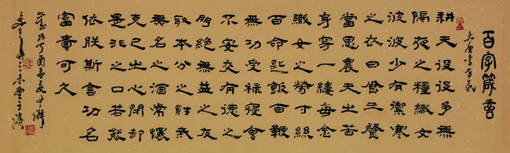 百字箴言
唐李世民
耕夫役役多無
隔夜之糧織女
波波少有禦寒
之衣日食三餐
當思農夫之苦
身穿一縷每念
織女之勞寸絲
千命匙飯百鞭
無功受祿寢食
不安交有德之
朋絕無益之友
取本分之財戒
無名之酒常懷
克己之心閉卻
是非之口若能
依朕斯言功名
富貴可久
歲於丁酉